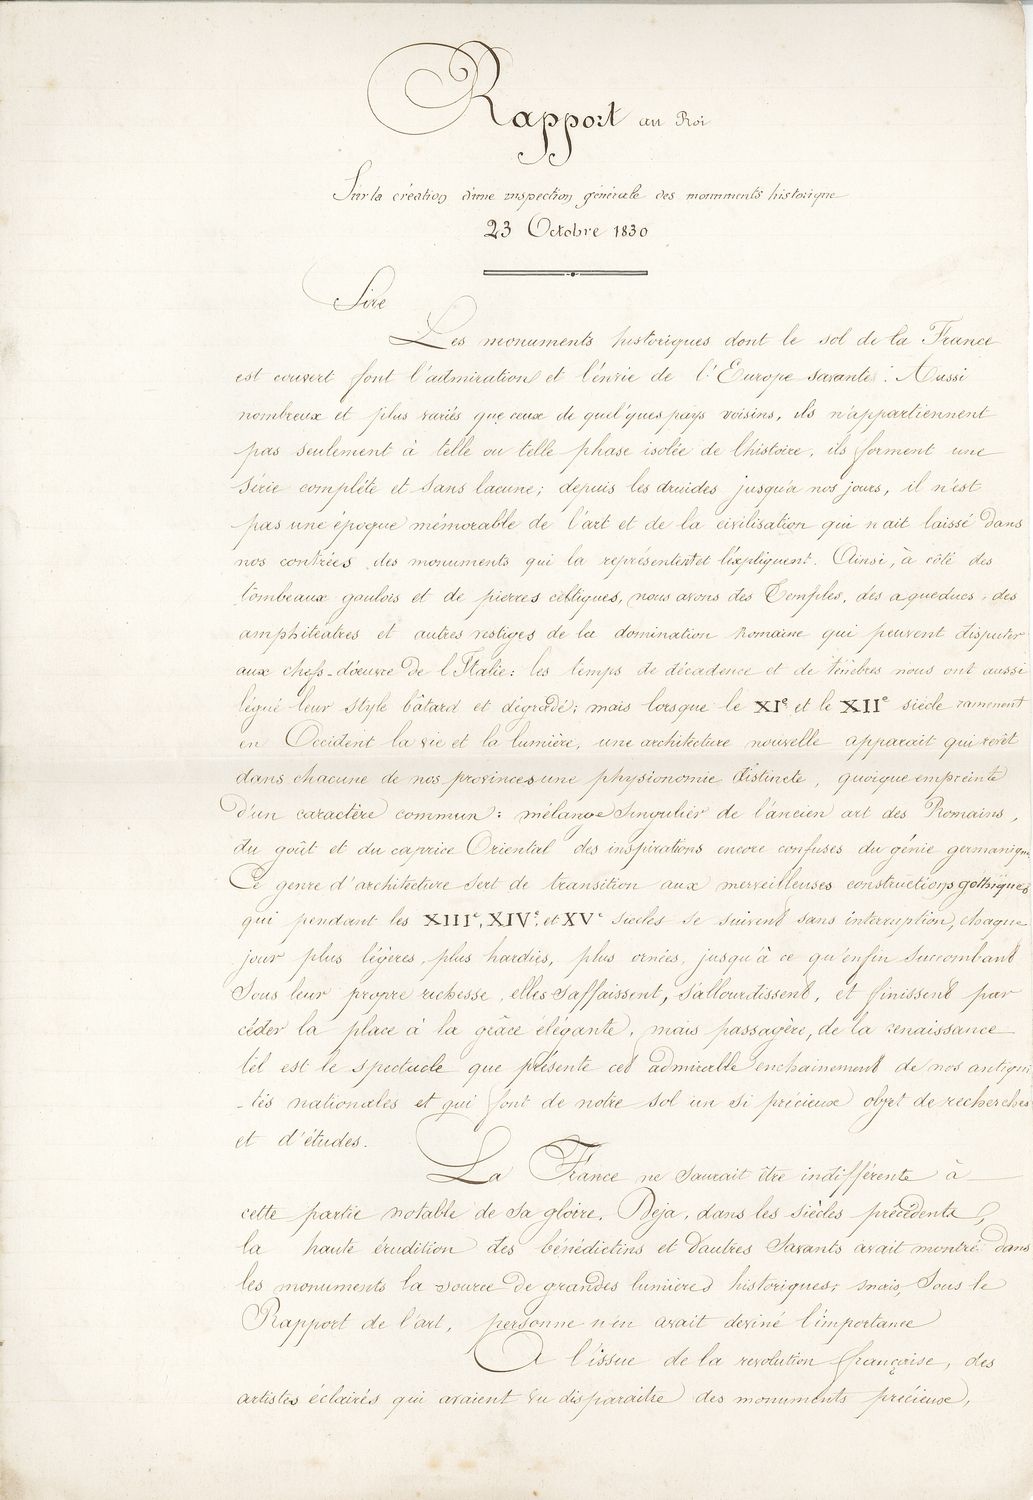 Rapport au Roi
Sur la création d'une inspection générale des monuments historique
23 Octobre 1830
Sire
Les monuments historiques dont le sol de la France
est couvert font l'admiration et l'envie de l'Europe savante. Aussi
nombreux et plus variés que ceux de quelques pays voisins, ils n'appartiennent
pas seulement à telle ou telle phase isolée de l'histoire, ils forment une
série complète et sans lacune; depuis les druides jusqu'à nos jours, il n'est
pas une époque mémorable de l'art et de la civilisation qui n'ait laissé dans
nos contrées des monuments qui la représentent et l'expliquent. Ainsi, à côté des
tombeaux gaulois et de pierres celtiques, nous avons des Temples, des aqueducs, des
amphitéatres et autres vestiges de la domination Romaine qui peuvent disputer
aux chefs-d'oeuvre de l'Italie: les temps de décadence et de ténèbres nous ont aussi
légué leur style bâtard et dégradé; mais lorsque le XIe et le XIIe siècle ramenent
en Occident la vie et la lumière, une architecture nouvelle apparait qui revêt
dans chacune de nos provinces une physionomie distincte, quoique empreinte
d'un caractère commun: mélange singulier de l'ancien art des Romains,
du goût et du caprice Oriental des inspirations encore confuses du génie germanique
Ce genre d'architecture sert de transition aux merveilleuses constructions gothiques
qui pendant les XIIIe, XIVe, et XVe siecles se suivent sans interruption, chaque
jour plus légères, plus hardies, plus ornées, jusqu'à ce qu'enfin succombant
sous leur propre richesse, elles s'affaissent, s'allourdissent, et finissent par
céder la place à la grâce élégante, mais passagère, de la renaissance
tel est le spectacle que présente cet admirable enchainement de nos antiqui
-tés nationales et qui font de notre sol un si précieux objet de recherches
et d'études.
La France ne saurait être indifférente à
cette partie notable de sa gloire. Déja, dans les siècles précédents,
la haute érudition des bénédictins et d'autres Savants avait montré dans
les monuments la source de grandes lumières historiques; mais, sous le
Rapport de l'art, personne n'en avait deviné l'importance
A l'issue de la revolution française, des
artistes éclairés qui avaient vu disparaitre des monuments précieux,